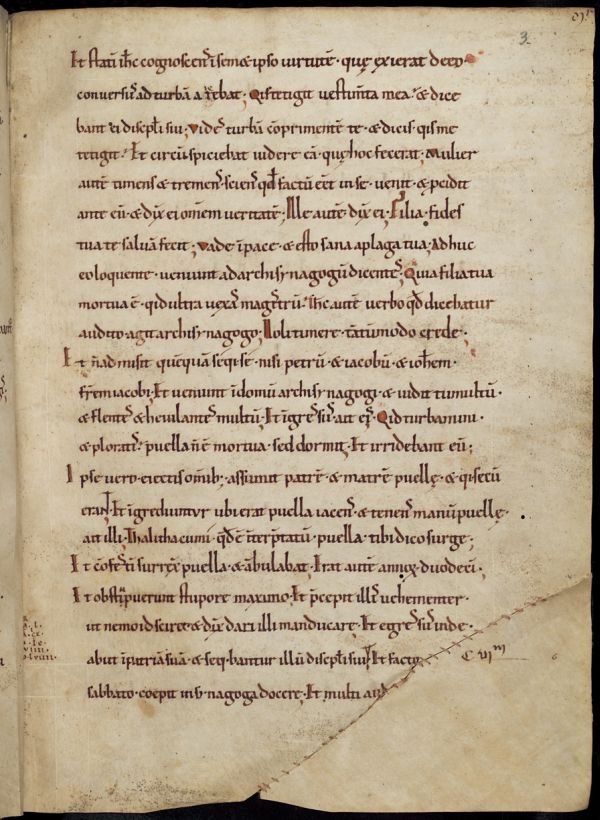 3
Et statī ih̄c cognoscenſ ī sem& ipso uirtutē · quę exierat de eo ·
conuersuſ ad turbā aiebat · Qiſ tetigit uestim̄ta mea · & dice
bant ei discipli sui · Videſ turbā cōprimentē te · & dicis qis me
tetigit · Et circū spiciebat uidere eā · quę hoc fecerat · Mulier
autē timens & tremenſ · scienſ qđ factū eēt in se · uenit · & ꝓcidit
ante eū · & dix̄ ei omnem ueritatē · Ille autē dix̄ ei · Filia · fides
tua te saluā fecit · vade ī pace · & esto sana a plaga tua · Adhuc
eo loquente · ueniunt ad archisynagogū dicenteſ · Quia filia tua
mortua ē · qid ultra uexaſ magr̄m · Ih̄c autē uerbo qđ dicebatur
audito · ait archisynagogo · Noli timere · tātūmodo crede ·
Et n̄ admisit quēquā seqi se · nisi petrū · & iacobū · & ioh̄em
fr̄em iacobi · Et ueniunt ī domū archisynagogi · & uidit tumultū ·
& flenteſ & heiulanteſ multū · Et īgresſuſ · ait eiſ · Qid turbamini ·
& ploratiſ · puella n̄ ē mortua · sed dormit · Et irridebant eū ;
Ipse uero eiectis omnibꝫ · assumit patrē · & matrē puellę · & qi secū
erant · Et īgrediuntur ubi erat puella iacenſ · & tenenſ manū puellę ·
ait illi · Thalitha cumi · qđ ē īterp̄tatū · puella · tibi dico surge ·
Et cōfestī surrex̄ puella · & ābulabat · Erat autē annoꝝ duodeci ·
Et obstipuerunt stupore maximo · Et p̄cepit illiſ uehementer ·
ut nemo id sciret · & dix̄ dari illi manducare · Et egresſuſ inde ·
abiit ī patriā suā · & seqbantur illū discipli sui · Et facto C VI
sabbato · coepit in synagoga docere · Et multi aud